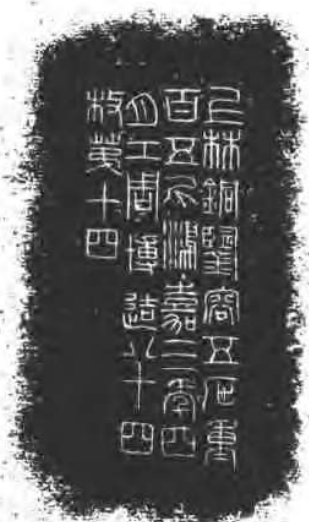 上林銅鑒容五石重
百五斤鴻嘉三年四
月工周博造八十四
枚第十四